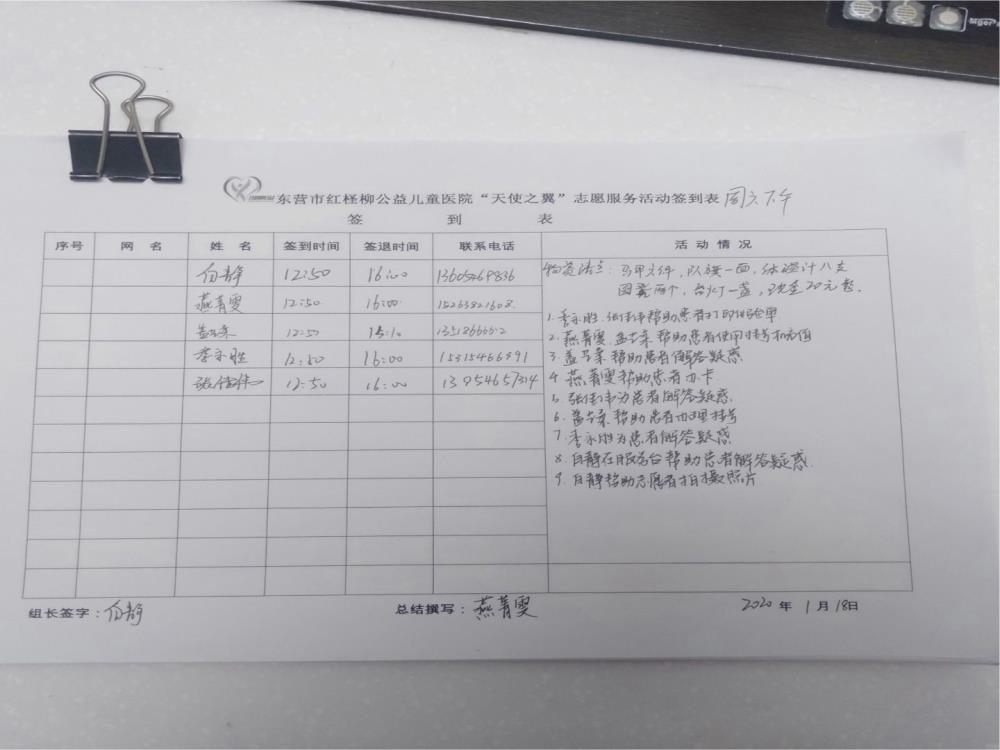 东营市红柽柳公益儿童医院“天使之翼”志愿服务活动签到表 周六下午
签 到 表
序号 网 名 姓 名 签到时间 签退时间 联系电话 活 动 情 况
白静 12:50 16:00 13605469836
燕菁雯 12:50 16:00 15263821608
12:50 15:10
李永胜 12:50 16:00 15315466891
张伟伟 12:50 16:00 13954657314
物资清点：马甲文件，队旗一面，体温计八支
图囊两个，台灯一盏，现金20元整。
1. 李永胜、张伟伟帮助患者打印化验单
2. 燕菁雯、帮助患者使用挂号机充值
3. 帮助患者解答疑惑
4. 燕菁雯帮助患者办卡
5. 张伟伟为患者解答疑惑
6. 帮助患者办理挂号
7. 李永胜为患者解答疑惑
8. 白静在服务台帮助患者解答疑惑
9. 白静帮助志愿者拍摄照片
组长签字：白静 总结撰写：燕菁雯 2020 年 1 月 18日